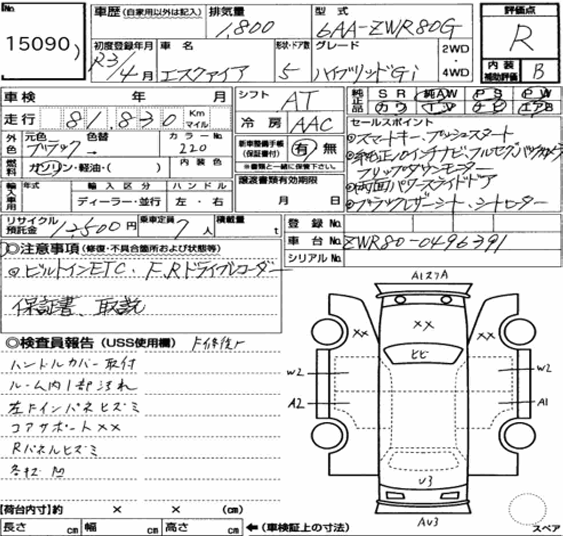 15090)
車歴 (自家用以外は記入) 排気量 1,800 型式 6AA-ZWR80G 評価点 R
初度登録年月 R3/4月 車名 エスクァイア 形状・ドア数 5 グレード ハイブリッドGi 2WD・4WD 内装補助評価 B
車検 年 月 シフト AT 純正品 SR 純AW PS PW
走行 81,830 Km マイル 冷房 AAC カワ TV ナビ エアB
外色 元色 ブラック 色替 カラーNo 220 新車整備手帳(保証書付) 有 無 ※書類と一緒に保管下さい。
セールスポイント
燃料 ガソリン・軽油・( ) 内装色
①スマートキー、プッシュスタート
②純正10インチナビ フルセグ バックカメラ
フリップダウンモニター
③両側パワースライドドア
④ブラックレザーシート、シートヒーター
輸入車用 年式 輸入区分 ディーラー・並行 ハンドル 左・右 譲渡書類有効期限 月 日
リサイクル預託金 円 乗車定員 7人 積載量 t 登録No
車台No ZWR80-0496391
シリアルNo
◎注意事項 (修復・不具合箇所および状態等)
◎ビルトインETC、F.Rドライブレコーダー
保証書、取説
◎検査員報告 (USS使用欄)
ハンドルカバー取付
ルーム内1部汚れ
左Fインパネヒズミ
コアサポートXX
Rパネルヒズミ
各松 凹
A1 XX A
XX XX XX
ヒビ
W2 W2
A2 A1
U3
AU3
スペア
【荷台内寸】約 × × (cm)
長さ cm 幅 cm 高さ cm ←(車検証上の寸法)